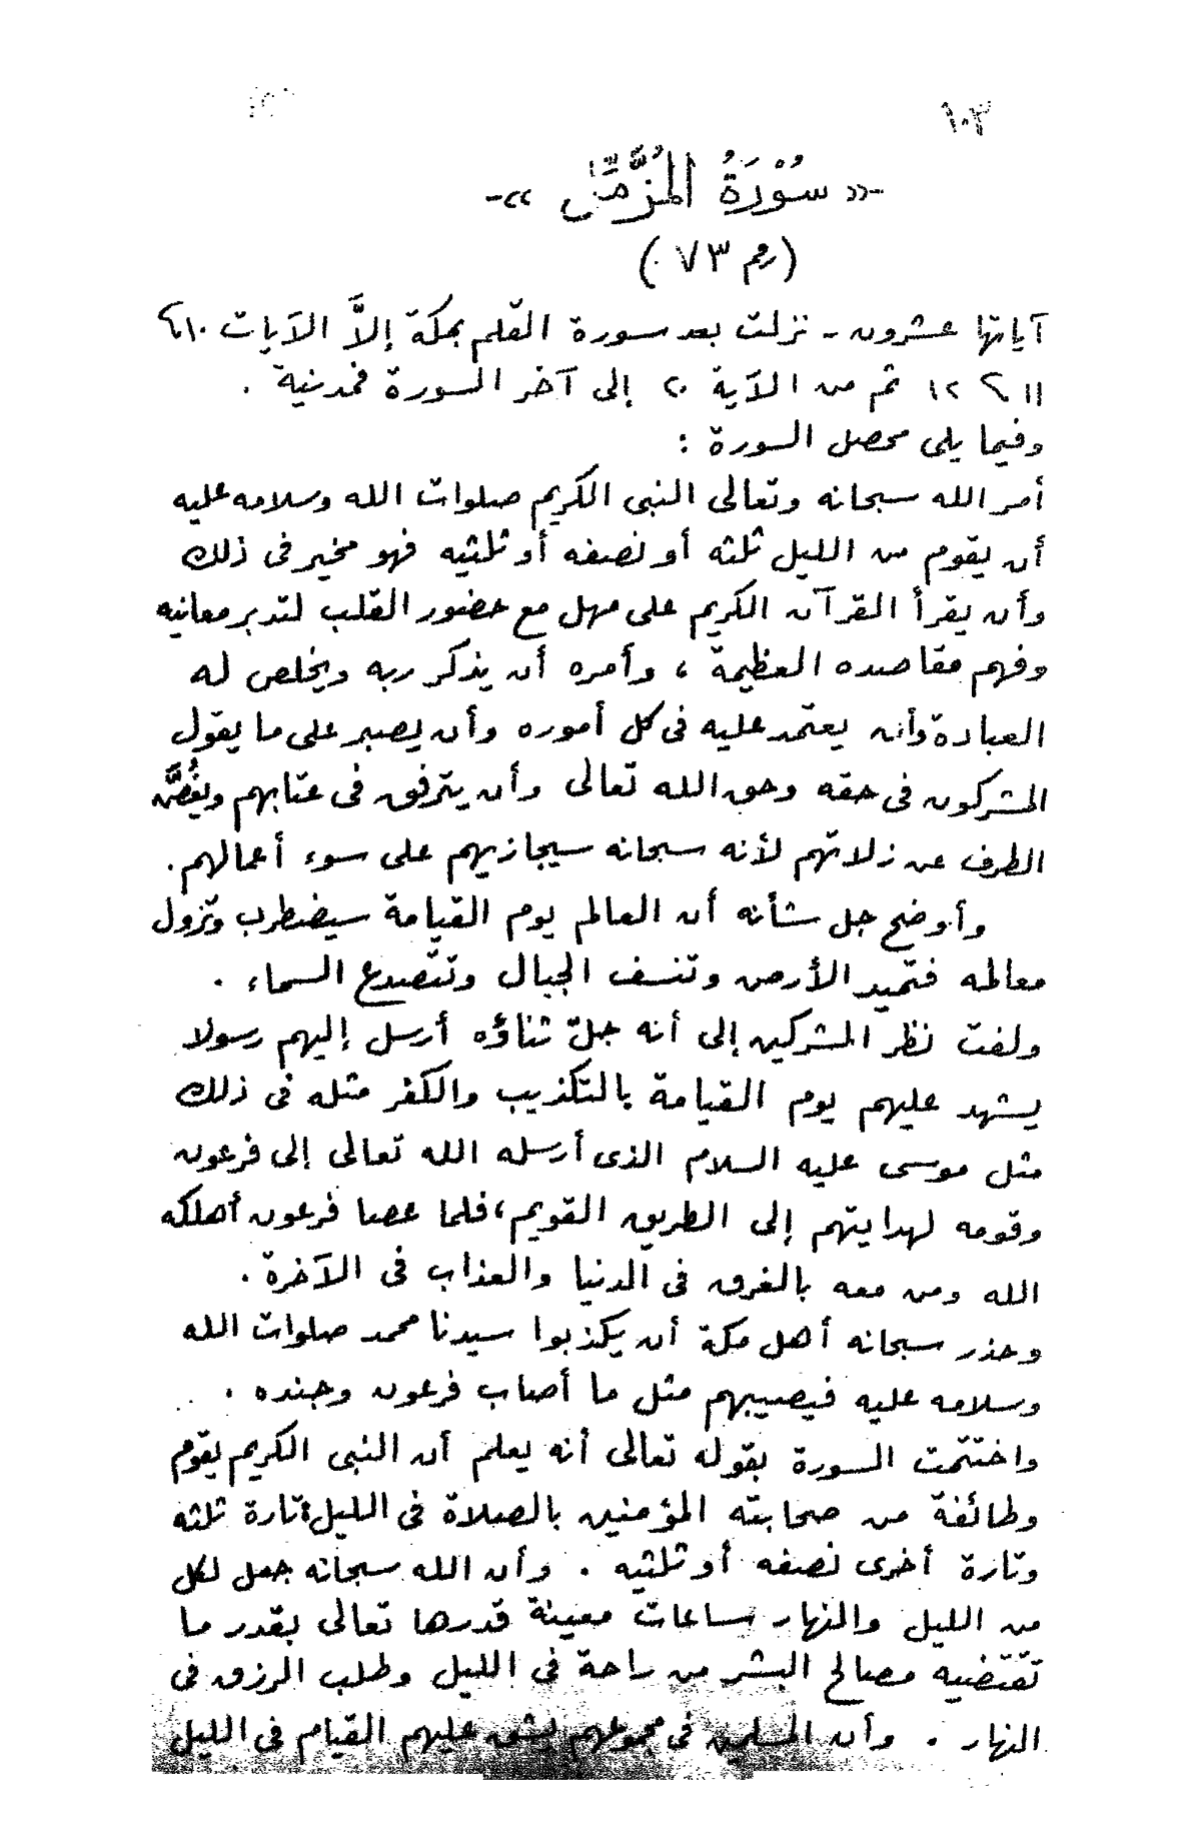 ١٠٣
-« سُوْرَةُ المُزَّمِّل »-
(رقم ٧٣)
آياتها عشرون - نزلت بعد سورة القلم بمكة إلاَّ الآيات ١٠ ،
١١ ، ١٢ ثم من الآية ٢٠ إلى آخر السورة فمدنية .
وفيما يلى محصل السورة :
أمر الله سبحانه وتعالى النبى الكريم صلوات الله وسلامه عليه
أن يقوم من الليل ثلثه أو نصفه أو ثلثيه فهو مخير فى ذلك
وأن يقرأ القرآن الكريم على مهل مع حضور القلب لتدبر معانيه
وفهم مقاصده العظيمة ، وأمره أن يذكر ربه ويخلص له
العبادة وأن يعتمد عليه فى كل أموره وأن يصبر على ما يقول
المشركون فى حقه وحق الله تعالى وأن يترفق فى عتابهم ويغُضَّ
الطرف عن زلاتهم لأنه سبحانه سيجازيهم على سوء أعمالهم .
وأوضح جل شأنه أن العالم يوم القيامة سيضطرب وتزول
معالمه فتميد الأرض وتنسف الجبال وتتصدع السماء .
ولفت نظر المشركين إلى أنه جلّ ثناؤه أرسل إليهم رسولا
يشهد عليهم يوم القيامة بالتكذيب والكفر مثله فى ذلك
مثل موسى عليه السلام الذى أرسله الله تعالى إلى فرعون
وقومه لهدايتهم إلى الطريق القويم ، فلما عصا فرعون أهلكه
الله ومن معه بالغرق فى الدنيا والعذاب فى الآخرة .
وحذر سبحانه أهل مكة أن يكذبوا سيدنا محمد صلوات الله
وسلامه عليه فيصيبهم مثل ما أصاب فرعون وجنده .
واختتمت السورة بقوله تعالى أنه يعلم أن النبى الكريم يقوم
وطائفة من صحابته المؤمنين بالصلاة فى الليل تارة ثلثه
وتارة أخرى نصفه أو ثلثيه . وأن الله سبحانه جعل لكل
من الليل والنهار ساعات معينة قدرها تعالى بقدر ما
تقتضيه مصالح البشر من راحة فى الليل وطلب الرزق فى
النهار . وأن المسلمين فى مجموعهم يشق عليهم القيام فى الليل